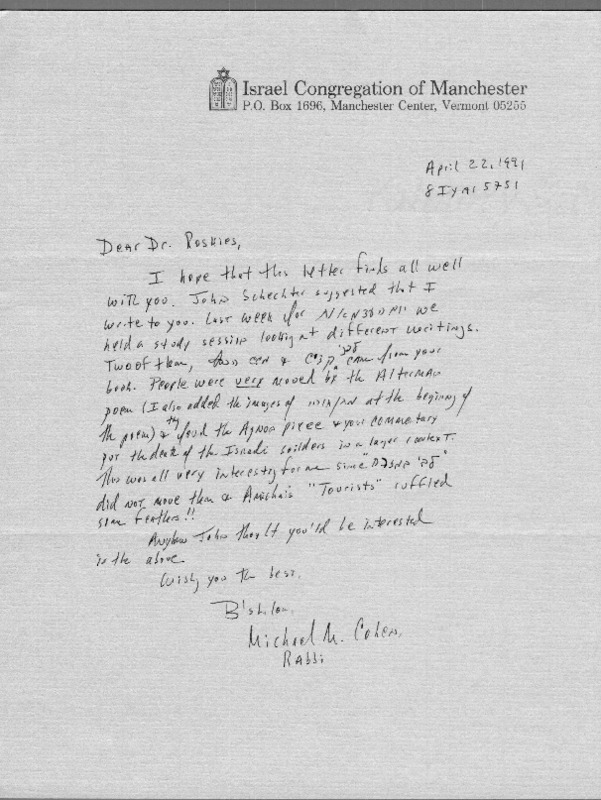 Israel Congregation of Manchester
P.O. Box 1696, Manchester Center, Vermont 05255
April 22, 1991
8 Iyar 5751
Dear Dr. Roskies,
I hope that this letter finds all well
with you. John Schechter suggested that I
write to you. Last week for יום העצמאות we
held a study session looking at different writings.
Two of them, & came from your
book. People were very moved by the Alterman
poem (I also added the images of at the beginning of
the poem) & they found the Agnon piece & your commentary
put the death of the Israeli soldiers in a larger context.
This was all very interesting for me since
did not move them & Amichai's "Tourists" ruffled
some feathers!!
Anyhow John thought you'd be interested
in the above.
Wishing you the best.
B'shalom,
Michael M. Cohen,
Rabbi